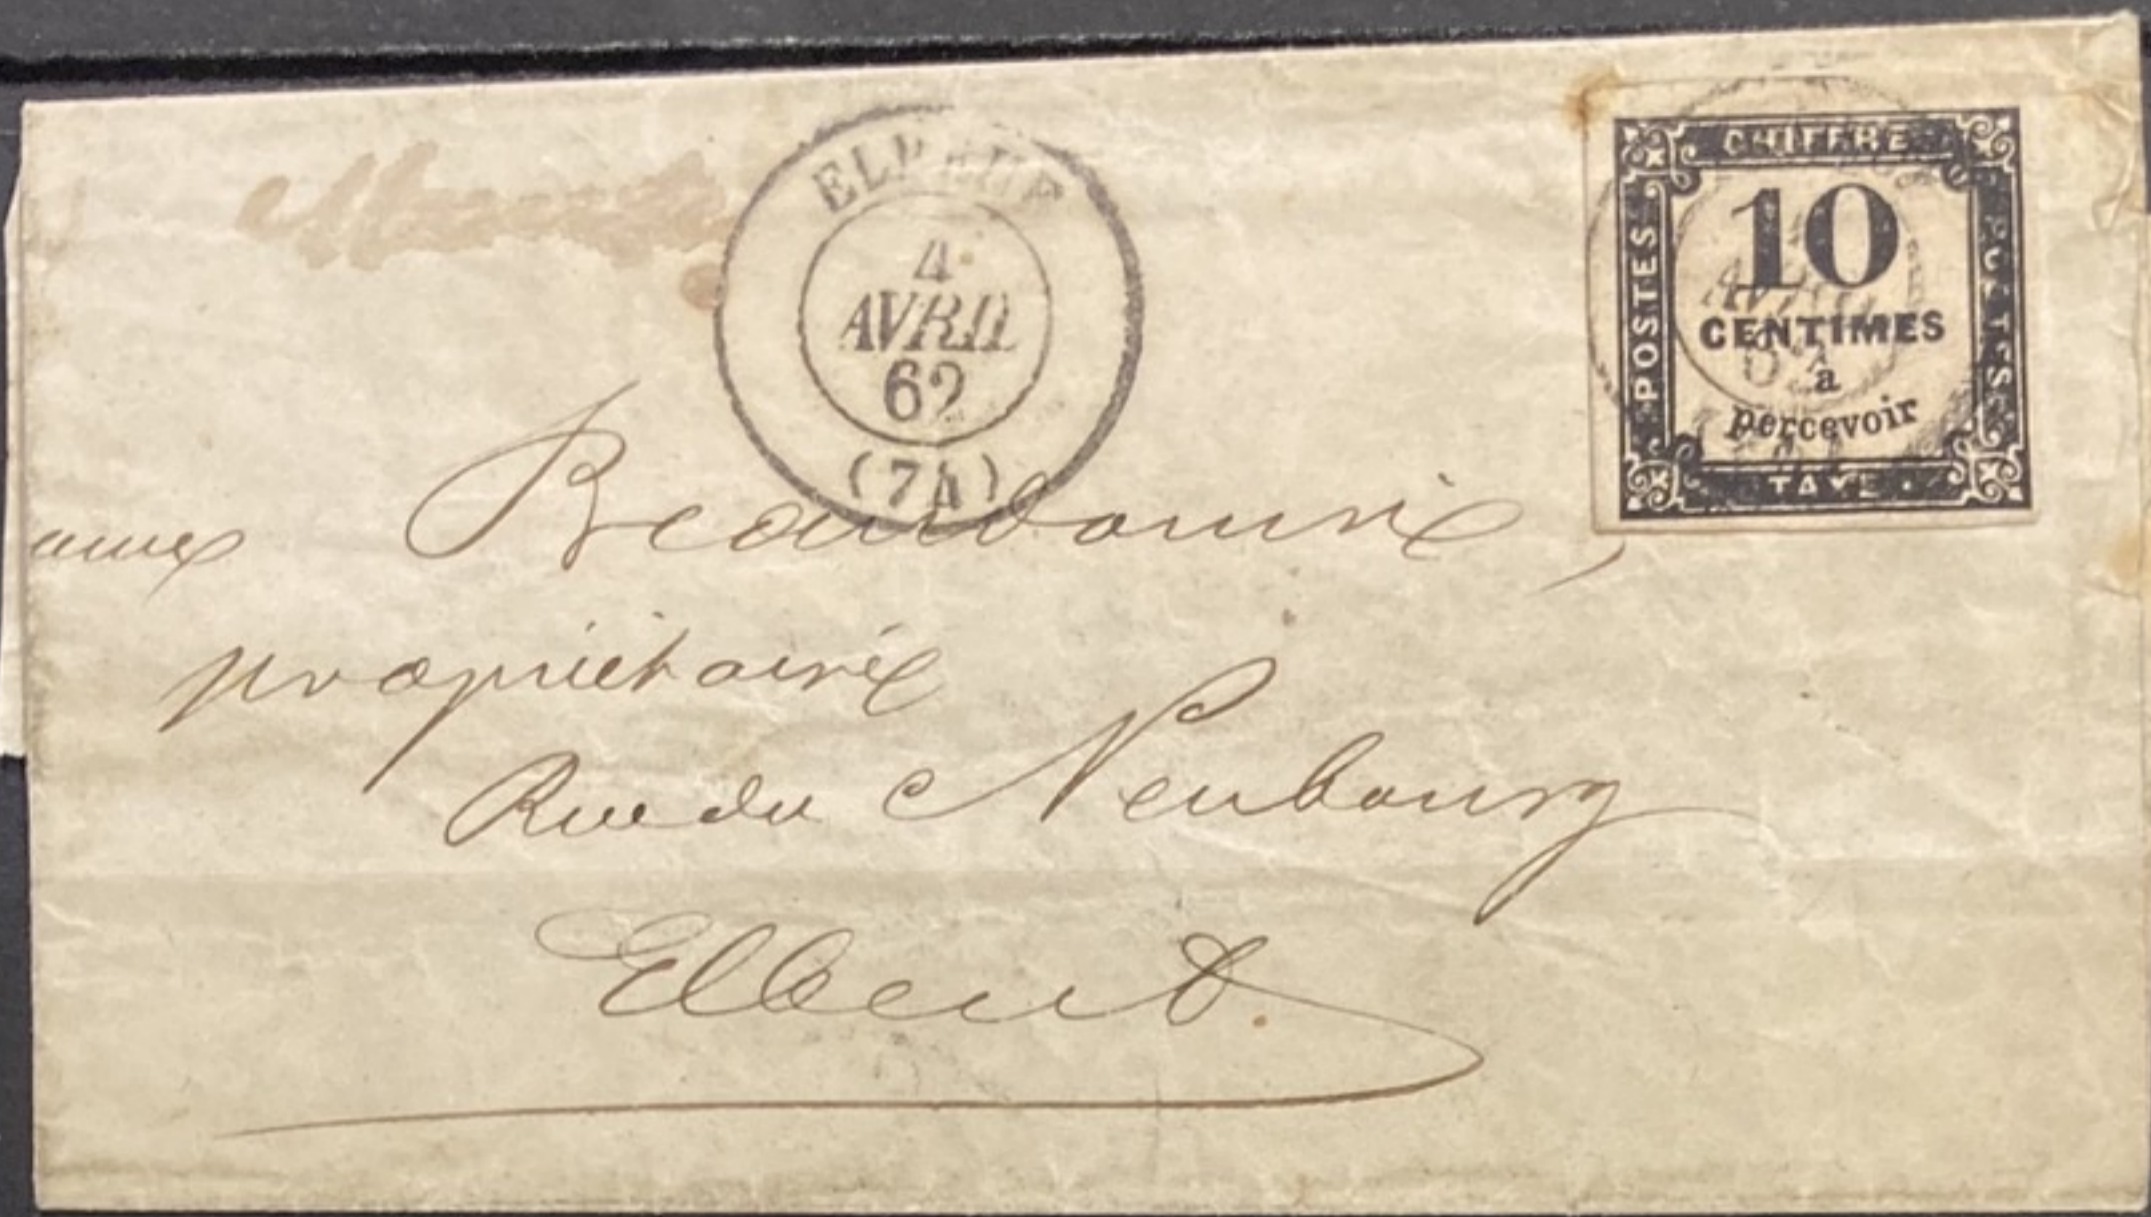 ELBEUF
4
AVRIL
62
(74)
CHIFFRE
POSTES
10
CENTIMES
à
percevoir
POSTES
TAXE
propriétaire
Rue du Neubourg
Elbeuf.